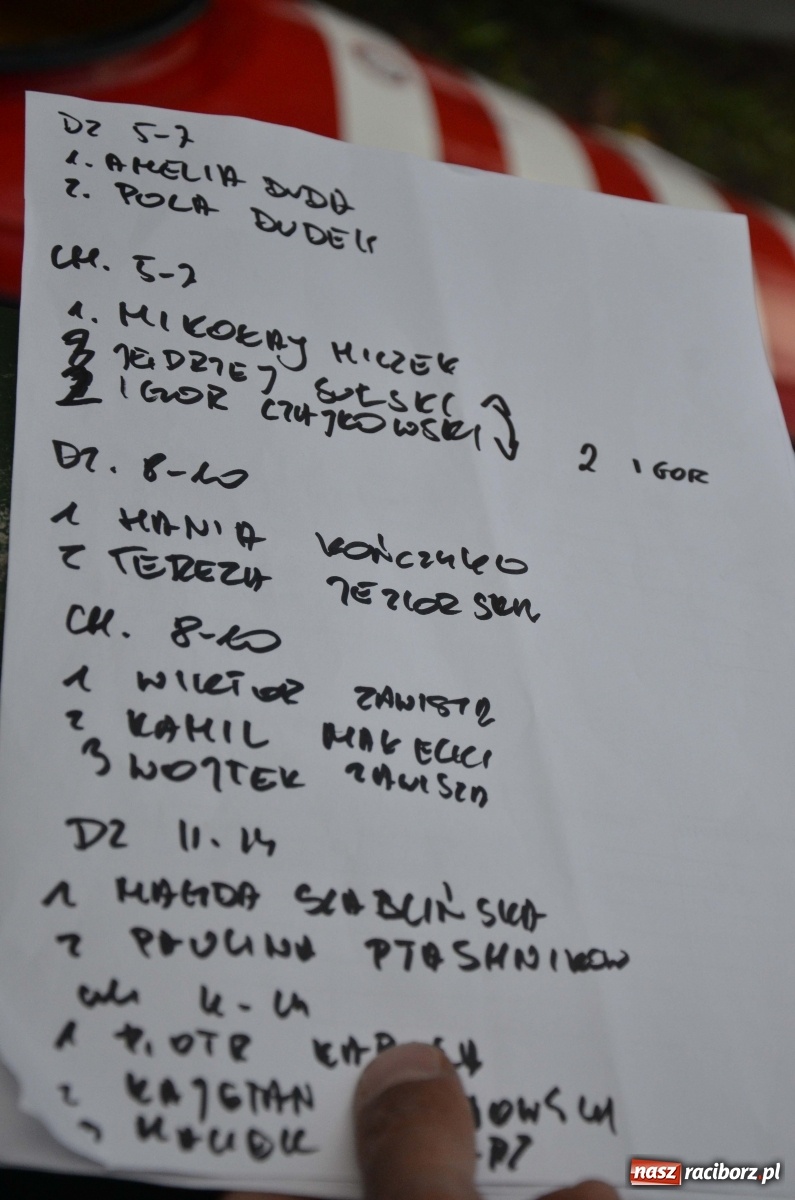 DZ 5-7
1. AMELIA DUDA
2. POLA DUDEK
CH. 5-7
1. MIKOŁAJ MICZEK
3 JĘDRZEJ SULSKI
2 IGOR CZAJKOWSKI
2 IGOR
DZ. 8-10
1 HANIA KOŃCZYŁO
2 TEREZA JEZIORSKA
CH. 8-10
1 WIKTOR ZAWISZA
2 KAMIL MAŁECKI
3 WOJTEK ZAWISZA
DZ 11-14
1 MAGDA SKABLIŃSKA
2 PAULINA PTASHNIKOW
1 PIOTR
2 KAJETAN
3 MACIEK
nasz raciborz.pl